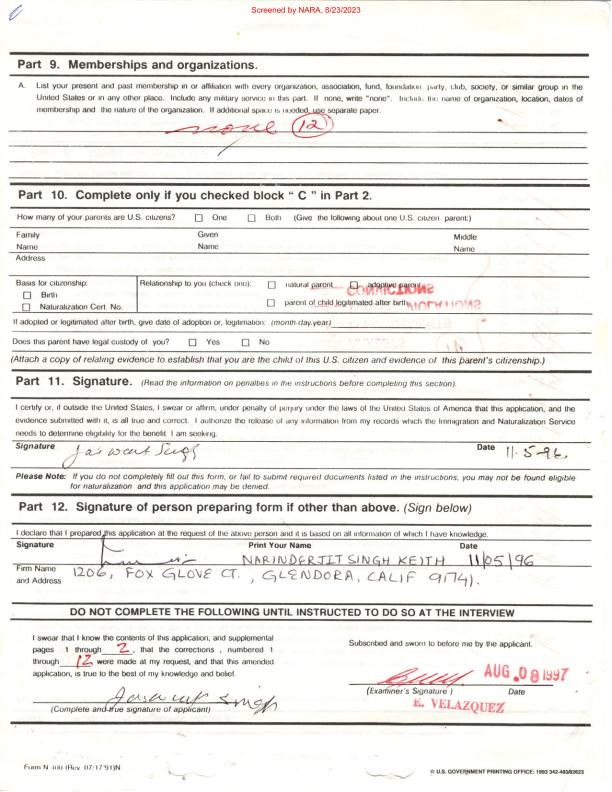 Screened by NARA, 8/23/2023
Part 9. Memberships and organizations.
A. List your present and past membership in or affiliation with every organization, association, fund, foundation, party, club, society, or similar group in the
United States or in any other place. Include any military service in this part. If none, write "none". Include the name of organization, location, dates of
membership and the nature of the organization. If additional space is needed, use separate paper.
none 12
Part 10. Complete only if you checked block " C " in Part 2.
How many of your parents are U.S. citizens? One Both (Give the following about one U.S. citizen parent:)
Family Given Middle
Name Name Name
Address
Basis for citizenship: Relationship to you (check one): natural parent adoptive parent
Birth
Naturalization Cert. No. parent of child legitimated after birth
If adopted or legitimated after birth, give date of adoption or, legitimation: (month.day.year)
Does this parent have legal custody of you? Yes No
(Attach a copy of relating evidence to establish that you are the child of this U.S. citizen and evidence of this parent's citizenship.)
Part 11. Signature. (Read the information on penalties in the instructions before completing this section).
I certify or, if outside the United States, I swear or affirm, under penalty of perjury under the laws of the United States of America that this application, and the
evidence submitted with it, is all true and correct. I authorize the release of any information from my records which the Immigration and Naturalization Service
needs to determine eligibility for the benefit I am seeking.
Signature Jaswant Singh Date 11-5-96.
Please Note: If you do not completely fill out this form, or fail to submit required documents listed in the instructions, you may not be found eligible
for naturalization and this application may be denied.
Part 12. Signature of person preparing form if other than above. (Sign below)
I declare that I prepared this application at the request of the above person and it is based on all information of which I have knowledge.
Signature Print Your Name Date
NARINDERJIT SINGH KEITH 11/05/96
Firm Name
and Address 1206, FOX GLOVE CT., GLENDORA, CALIF 91741.
DO NOT COMPLETE THE FOLLOWING UNTIL INSTRUCTED TO DO SO AT THE INTERVIEW
I swear that I know the contents of this application, and supplemental
pages 1 through 2, that the corrections, numbered 1
through 12 were made at my request, and that this amended
application, is true to the best of my knowledge and belief.
Jaswant Singh
(Complete and true signature of applicant)
Subscribed and sworn to before me by the applicant.
AUG 08 1997
(Examiner's Signature) Date
E. VELAZQUEZ
Form N-400 (Rev. 07/17/91)N
☆ U.S. GOVERNMENT PRINTING OFFICE: 1993 342-483/82623